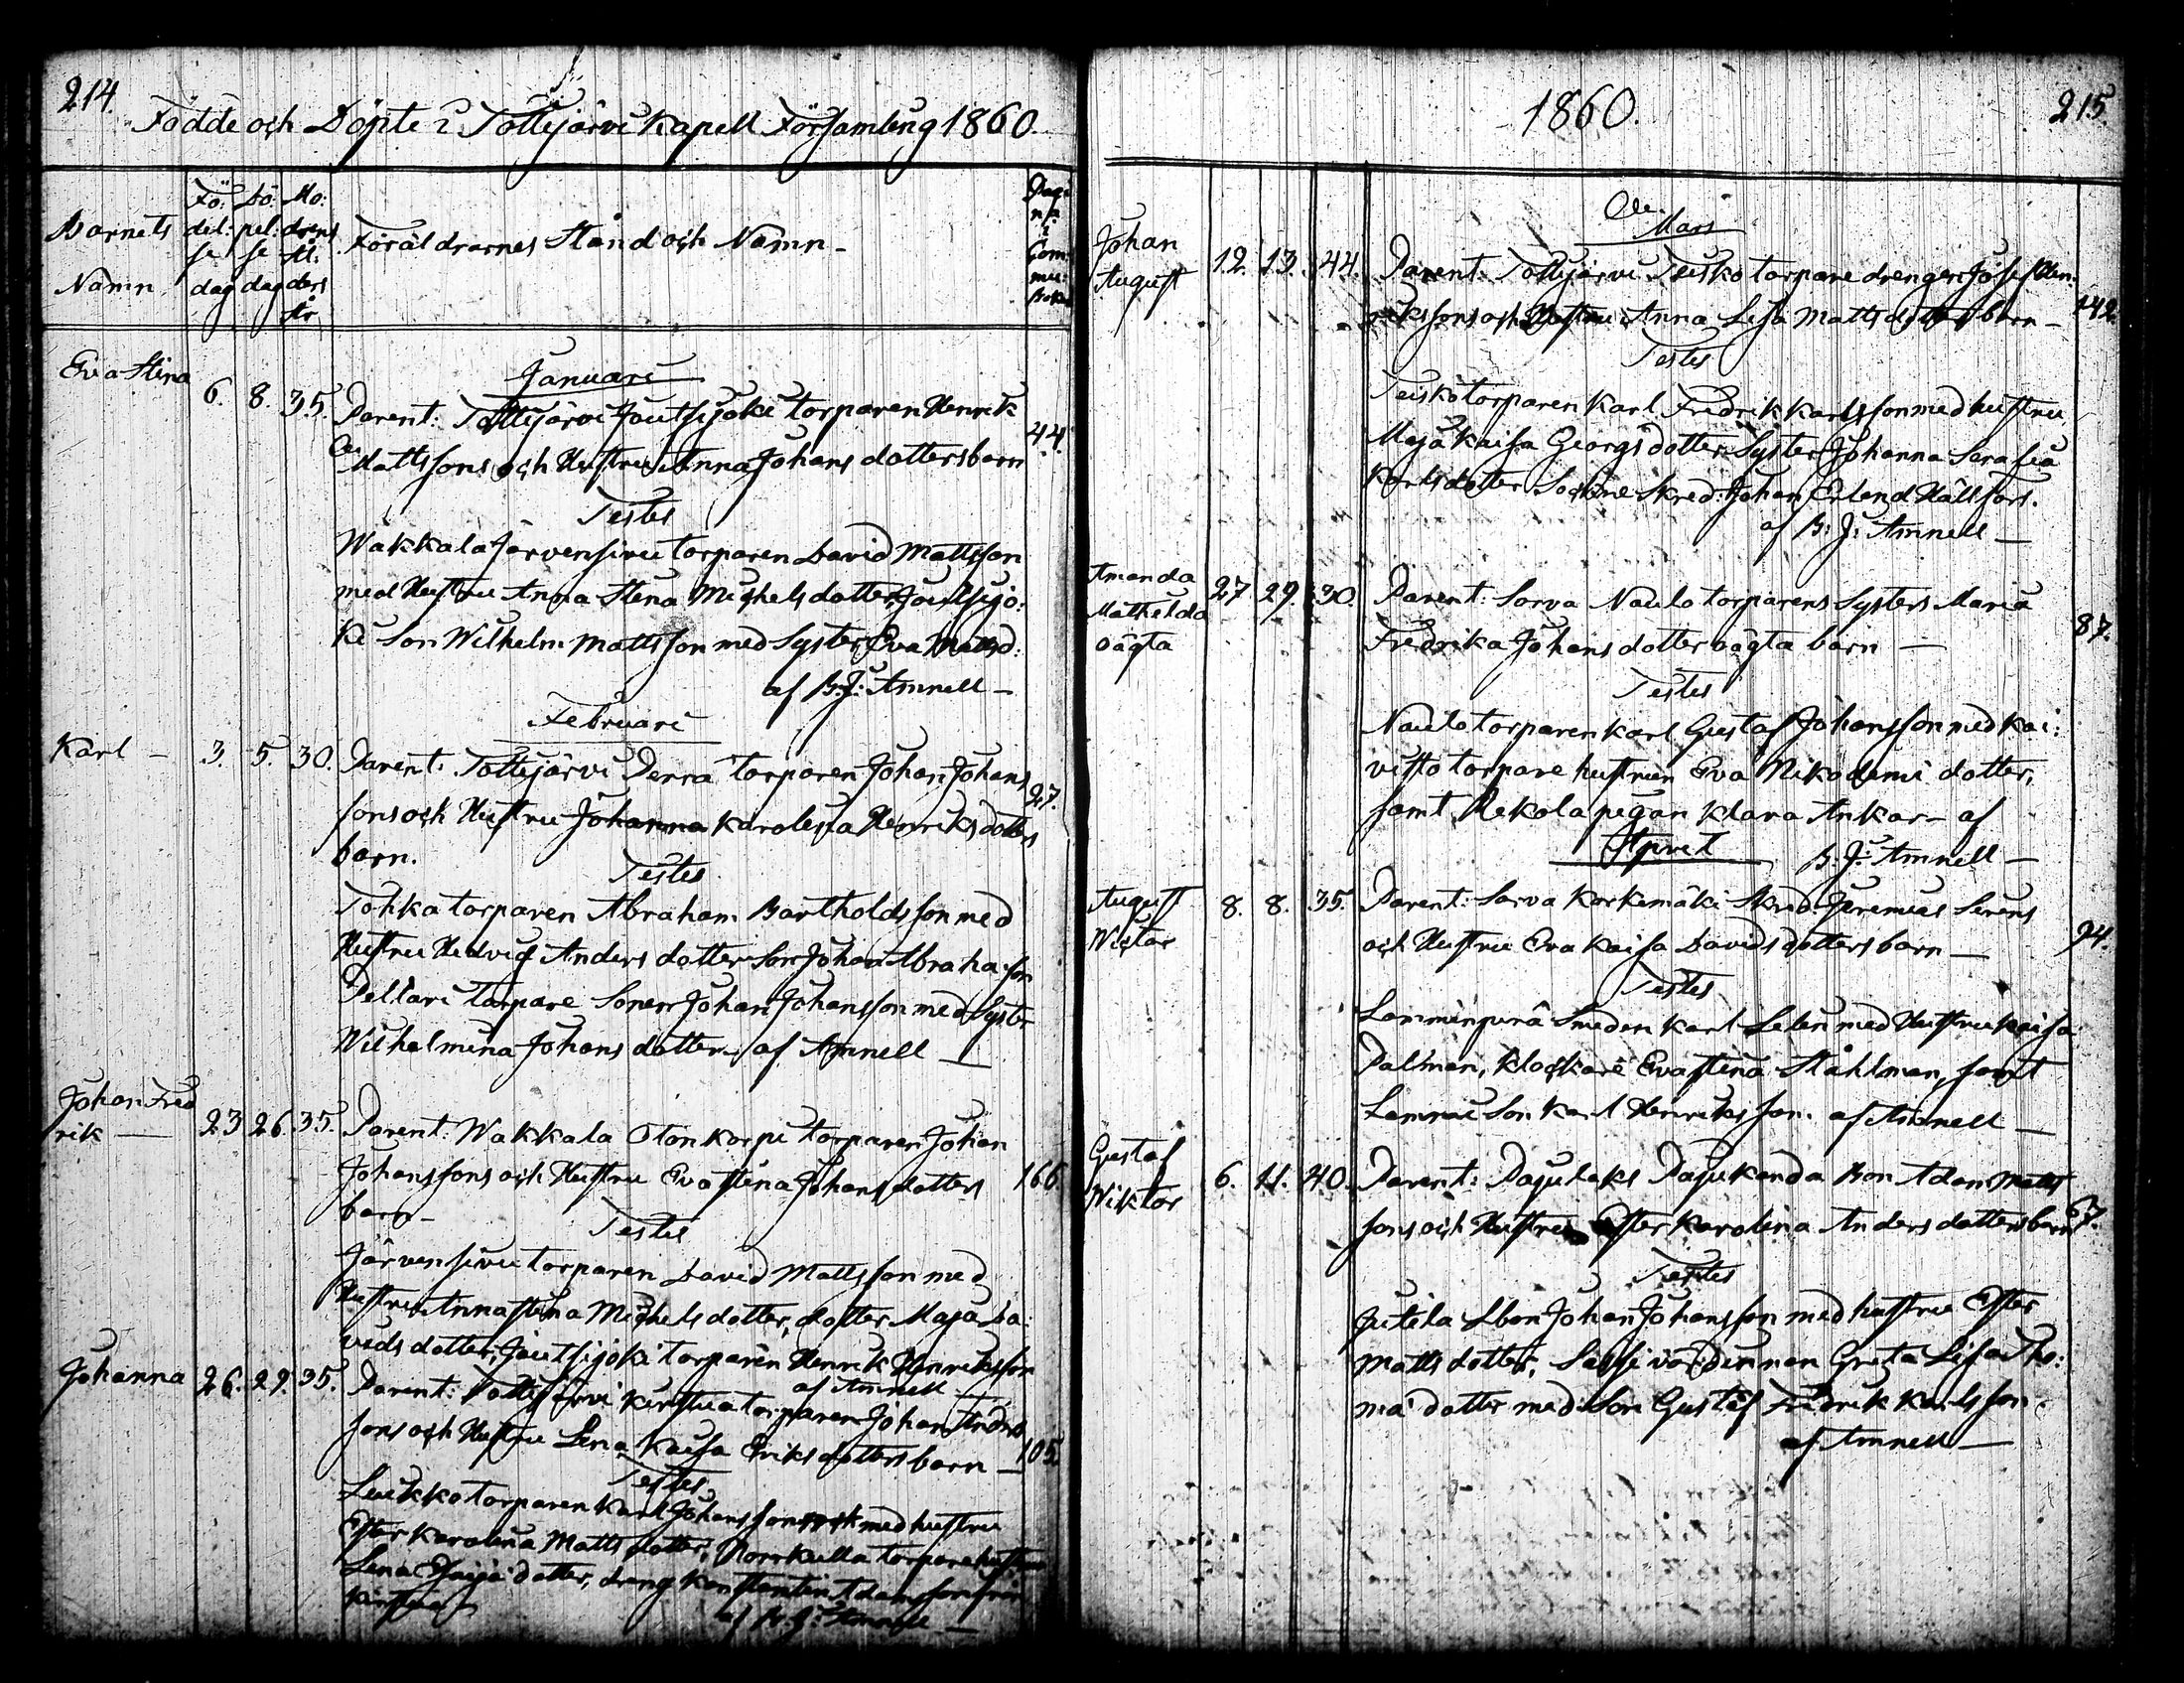 214.
Födde och Döpte i Tottijärvi Kapell Församling 1860.
Barnets Namn
Fö: del: se dag
Dö: pel: se dag
Mo: drens Ål: ders År
Föräldrarnes Stånd och Namn -
Pagi n: i Com mu: Boken
Januari
Eva Stina 6. 8. 35. Parent: Tottijärvi Joutsijoki torparen Henrik
Mattssons och Hustru Anna Johans dotters barn 44.
Testes
Wakkala Järvensivu torparen David Mattsson
med Hustru Anna Stina Michels dotter, Joutsijo:
ki Son Wilhelm Mattsson med Syster Eva Mattsd:
af B: J: Amnell -
Februari
Karl - 3. 5. 30. Parent: Tottijärvi Perra torparen Johan Johans
sons och Hustru Johanna Karolina Henriks dotters 27.
barn.
Testes
Tohka torparen Abraham Bartholdsson med
Hustru Hedvig Anders dotter Son Johan Abrahasson
Peltari torpare Sonen Johan Johansson med Syster
Wilhelmina Johans dotter - af Amnell -
Johan Fred
rik - 23 26. 35. Parent: Wakkala Otonkorpi torparen Johan
Johanssons och Hustru Eva Stina Johans dotters 166.
barn -
Testes
Järvensivu torparen David Mattsson med
Hustru Anna Stina Michels dotter, dotter Maja Da:
vids dotter, Joutsijoki torparen Henrik Henriksson
af Amnell -
Johanna 26. 29. 35. Parent: Tottijärvi Kirstua torparen Johan Anders
sons och Hustru Lena Kaisa Eriks dotters barn - 105.
Testes
Leukko torparen Karl Johansson med hustru
Ester Karolina Matts dotter, Norrkulla torpare hustru
Lena Esaiæ dotter, dreng Konstantin Adamsson från
Kirstua -
af B. J: Amnell -
1860.
215.
Mars
Johan
August 12. 13. 44. Parent: Tottijärvi Teisko torpare drengen Josef Hen:
rikssons och Hustru Anna Lisa Matts dotters barn - 142.
Testes
Teisko torparen Karl Fredrik Karlsson med hustru
Maja Kaisa Georgs dotter Syster Johanna Serafia
Karls dotter Sockne Skred: Johan Erland Hällfors.
af B: J: Amnell -
Amanda
Mathilda
oägta 27 29. 30. Parent: Sorva Naulo torparens Systers Maria
Fredrika Johans dotter oägta barn - 87.
Testes
Naulo torparen Karl Gustaf Johansson med Kai:
visto torpare hustrun Eva Nikodemi dotter,
samt Rekola pigan Klara Ankar - af
B. J: Amnell -
April
August
Wictor 8. 8. 35. Parent: Sorva Korkemäki Skred. Jeremias Serens
och Hustru Eva Kaisa Davids dotters barn - 94.
Testes
Lamminperä Smeden Karl Selen med Hustru Kaisa
Palman, Klockare Eva Stina Ståhlman, samt
Lemnai Son Karl Henriksson. af Amnell -
Gustaf
Wiktor 6. 11. 40. Parent: Pajulaks Pajukanda Bon Adam Matts
sons och Hustru Ester Karolina Anders dotters barn 67.
Testes
Jutila Sbon Johan Johansson med hustru Ester
Matts dotter, Sassi värdinnan Greta Lisa Tho:
mæ dotter med Son Gustaf Fredrik Karlsson -
af Amnell -